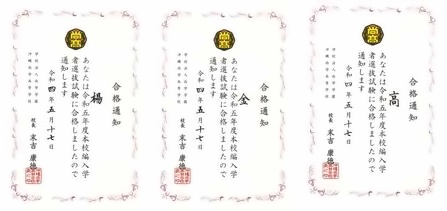 合格通知
楊
あなたは令和五年度本校編入学
者選抜試験に合格しましたので
通知します
令和四年五月十七日
校長 末吉 康徳
合格通知
金
あなたは令和五年度本校編入学
者選抜試験に合格しましたので
通知します
令和四年五月十七日
校長 末吉 康徳
合格通知
高
あなたは令和五年度本校編入学
者選抜試験に合格しましたので
通知します
令和四年五月十七日
校長 末吉 康徳